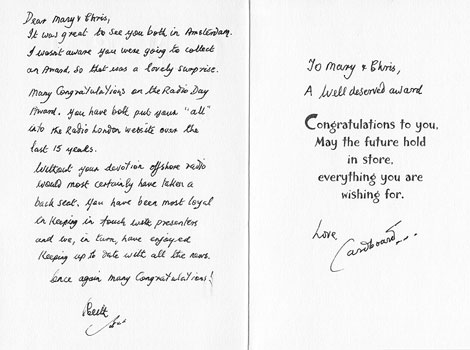 Dear Mary & Chris,
It was great to see you both in Amsterdam.
I wasnt aware you were going to collect
an Award, so that was a lovely surprise.
Many Congratulations on the Radio Day
Award. You have both put your "all"
into the Radio London website over the
last 15 years.
Without your devotion offshore radio
would most certainly have taken a
back seat. You have been most loyal
in keeping in touch with presenters
and we, in turn, have enjoyed
keeping up to date with all the news.
Once again Many Congratulations!
To Mary & Chris,
A Well deserved award
Congratulations to you,
May the future hold
in store,
everything you are
wishing for.
Love
Cardboard